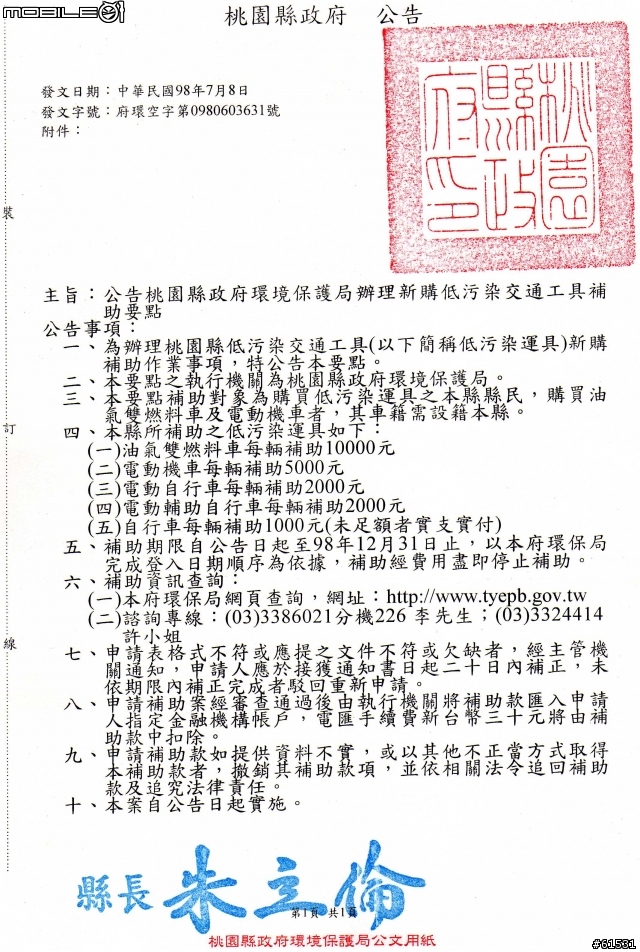 MOBILE01
桃園縣政府　公告
桃園縣政府印
發文日期：中華民國98年7月8日
發文字號：府環空字第0980603631號
附件：
主旨：公告桃園縣政府環境保護局辦理新購低污染交通工具補
助要點
公告事項：
一、為辦理桃園縣低污染交通工具(以下簡稱低污染運具)新購
補助作業事項，特公告本要點。
二、本要點之執行機關為桃園縣政府環境保護局。
三、本要點補助對象為購買低污染運具之本縣縣民，購買油
氣雙燃料車及電動機車者，其車籍需設籍本縣。
四、本縣所補助之低污染運具如下：
(一)油氣雙燃料車每輛補助10000元
(二)電動機車每輛補助5000元
(三)電動自行車每輛補助2000元
(四)電動輔助自行車每輛補助2000元
(五)自行車每輛補助1000元(未足額者實支實付)
五、補助期限自公告日起至98年12月31日止，以本府環保局
完成登入日期順序為依據，補助經費用盡即停止補助。
六、補助資訊查詢：
(一)本府環保局網頁查詢，網址：http://www.tyepb.gov.tw
(二)諮詢專線：(03)3386021分機226 李先生；(03)3324414
許小姐
七、申請表格式不符或應提之文件不符或欠缺者，經主管機
關通知，申請人應於接獲通知書日起二十日內補正，未
依期限內補正完成者駁回重新申請。
八、申請補助案經審查通過後由執行機關將補助款匯入申請
人指定金融機構帳戶，電匯手續費新台幣三十元將由補
助款中扣除。
九、申請補助款如提供資料不實，或以其他不正當方式取得
本補助款者，撤銷其補助款項，並依相關法令追回補助
款及追究法律責任。
十、本案自公告日起實施。
裝
訂
線
縣長 朱立倫
第1頁 共1頁
桃園縣政府環境保護局公文用紙
#61531